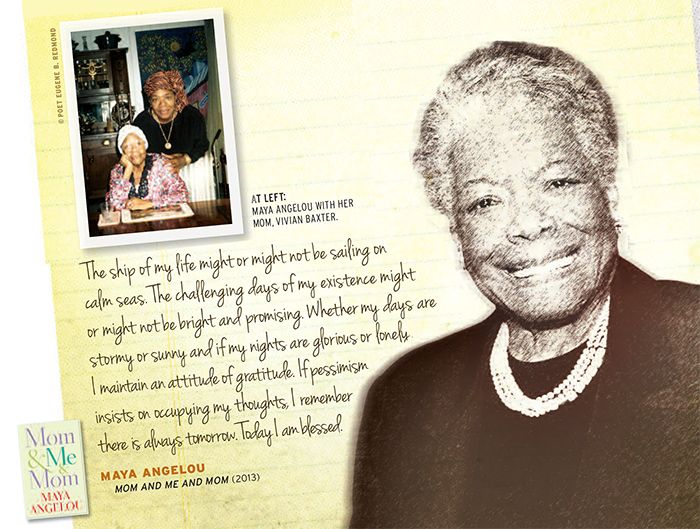 © POET EUGENE B. REDMOND
AT LEFT:
MAYA ANGELOU WITH HER
MOM, VIVIAN BAXTER.
The ship of my life might or might not be sailing on
calm seas. The challenging days of my existence might
or might not be bright and promising. Whether my days are
stormy or sunny and if my nights are glorious or lonely
I maintain an attitude of gratitude. If pessimism
insists on occupying my thoughts, I remember
there is always tomorrow. Today I am blessed.
MAYA ANGELOU
MOM AND ME AND MOM (2013)
Mom
& Me
& Mom
MAYA
ANGELOU